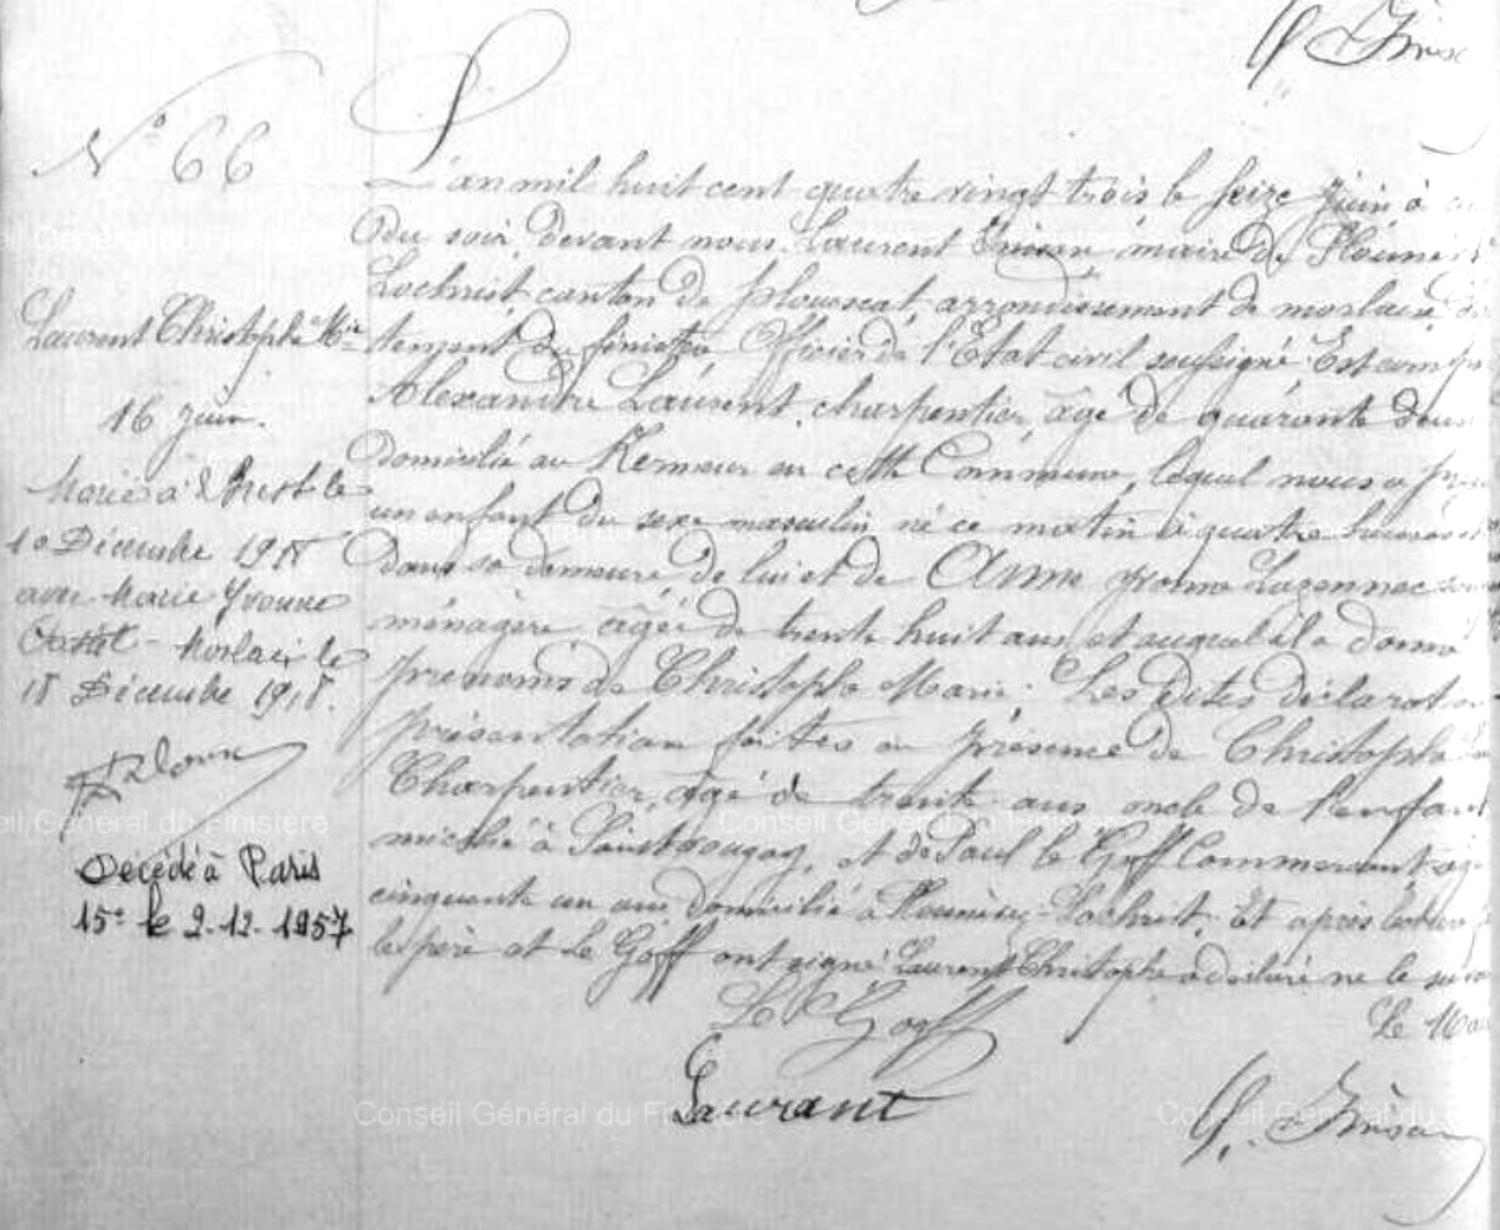 N° 66
Laurent Christophe Mie
16 juin.
Marié à Brest le
10 Décembre 1918
avec Marie Yvonne
Morlaix le
18 Décembre 1918.
Décédé à Paris
15e le 2-12-1957
L'an mil huit cent quatre vingt trois le seize juin à
du soir devant nous Laurent maire de
Lochrist canton de plouescat, arrondissement de morlaix,
tement du finistère Officier de l'Etat civil soussigné Est
Alexandre Laurent, charpentier, âgé de quarante deux
domicilié au Kermeur en cette Commune, lequel nous a
un enfant du sexe masculin né ce matin à quatre heures
dans sa demeure, de lui et de Anne yvonne Lazennec
ménagère âgée de trente huit ans et auquel il a donné
prenoms de Christophe Marie. Les dites
présentation faites en présence de Christophe
Charpentier, âgé de trente ans oncle de l'enfant
à et de Paul le Goff Commercant
cinquante un ans domicilié à Plounévez-Lochrist. Et après
le père et Le Goff ont signé Laurent Christophe a déclaré ne le
Le
Le Goff
Laurant
Conseil Général du Finistère
Conseil Général du Finistère
Conseil Général du Finistère